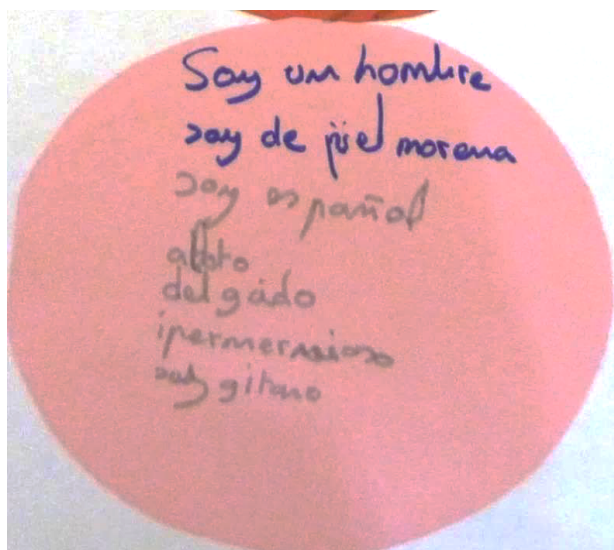 Soy un hombre
soy de piel morena
soy español
alto
delgado
ipernervioso
soy gitano